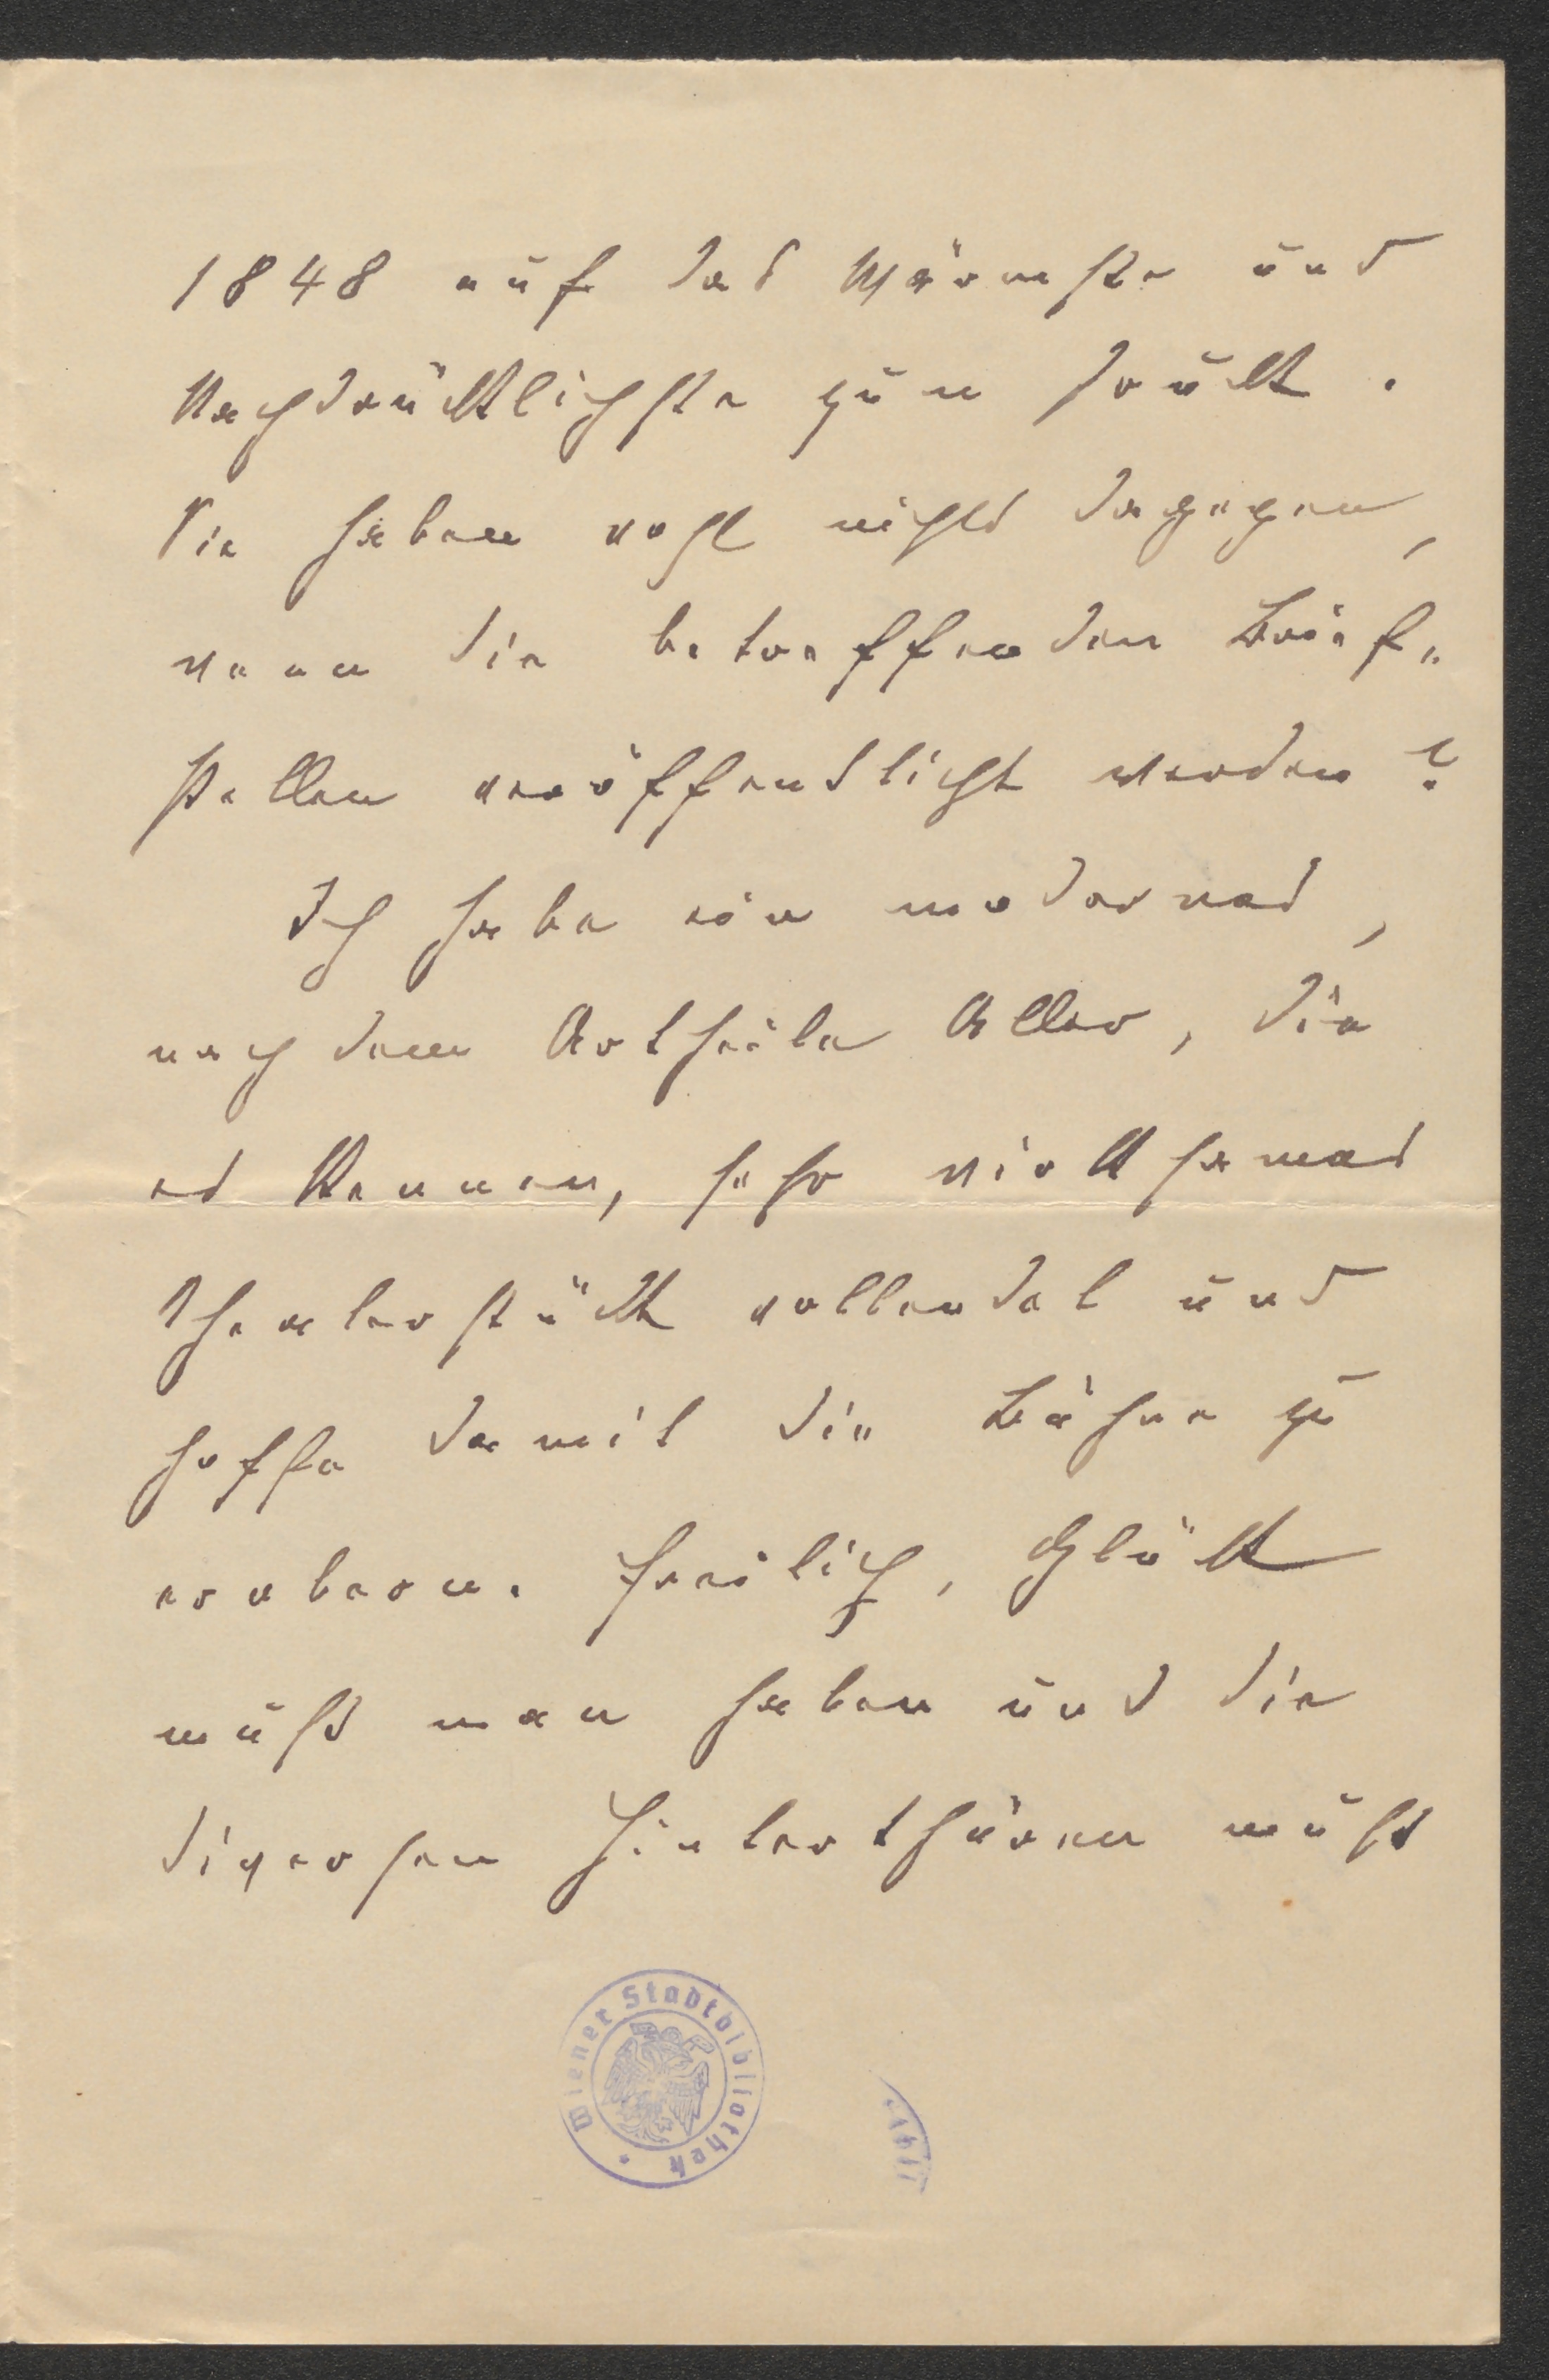 1848 auf das Wärmste und
Nachdrücklichste zum Druck.
Sie haben wohl nichts dagegen,
wenn die betreffenden Brief-
stellen veröffentlicht werden?
Ich habe ein modernes,
nach dem Urtheile Aller, die
es kennen, sehr wirksames
Theaterstück vollendet und
hoffe damit die Bühne zu
erobern. Freilich, Glück
muß man haben und die
diversen Hinterthüren muß
Wiener Stadtbibliothek